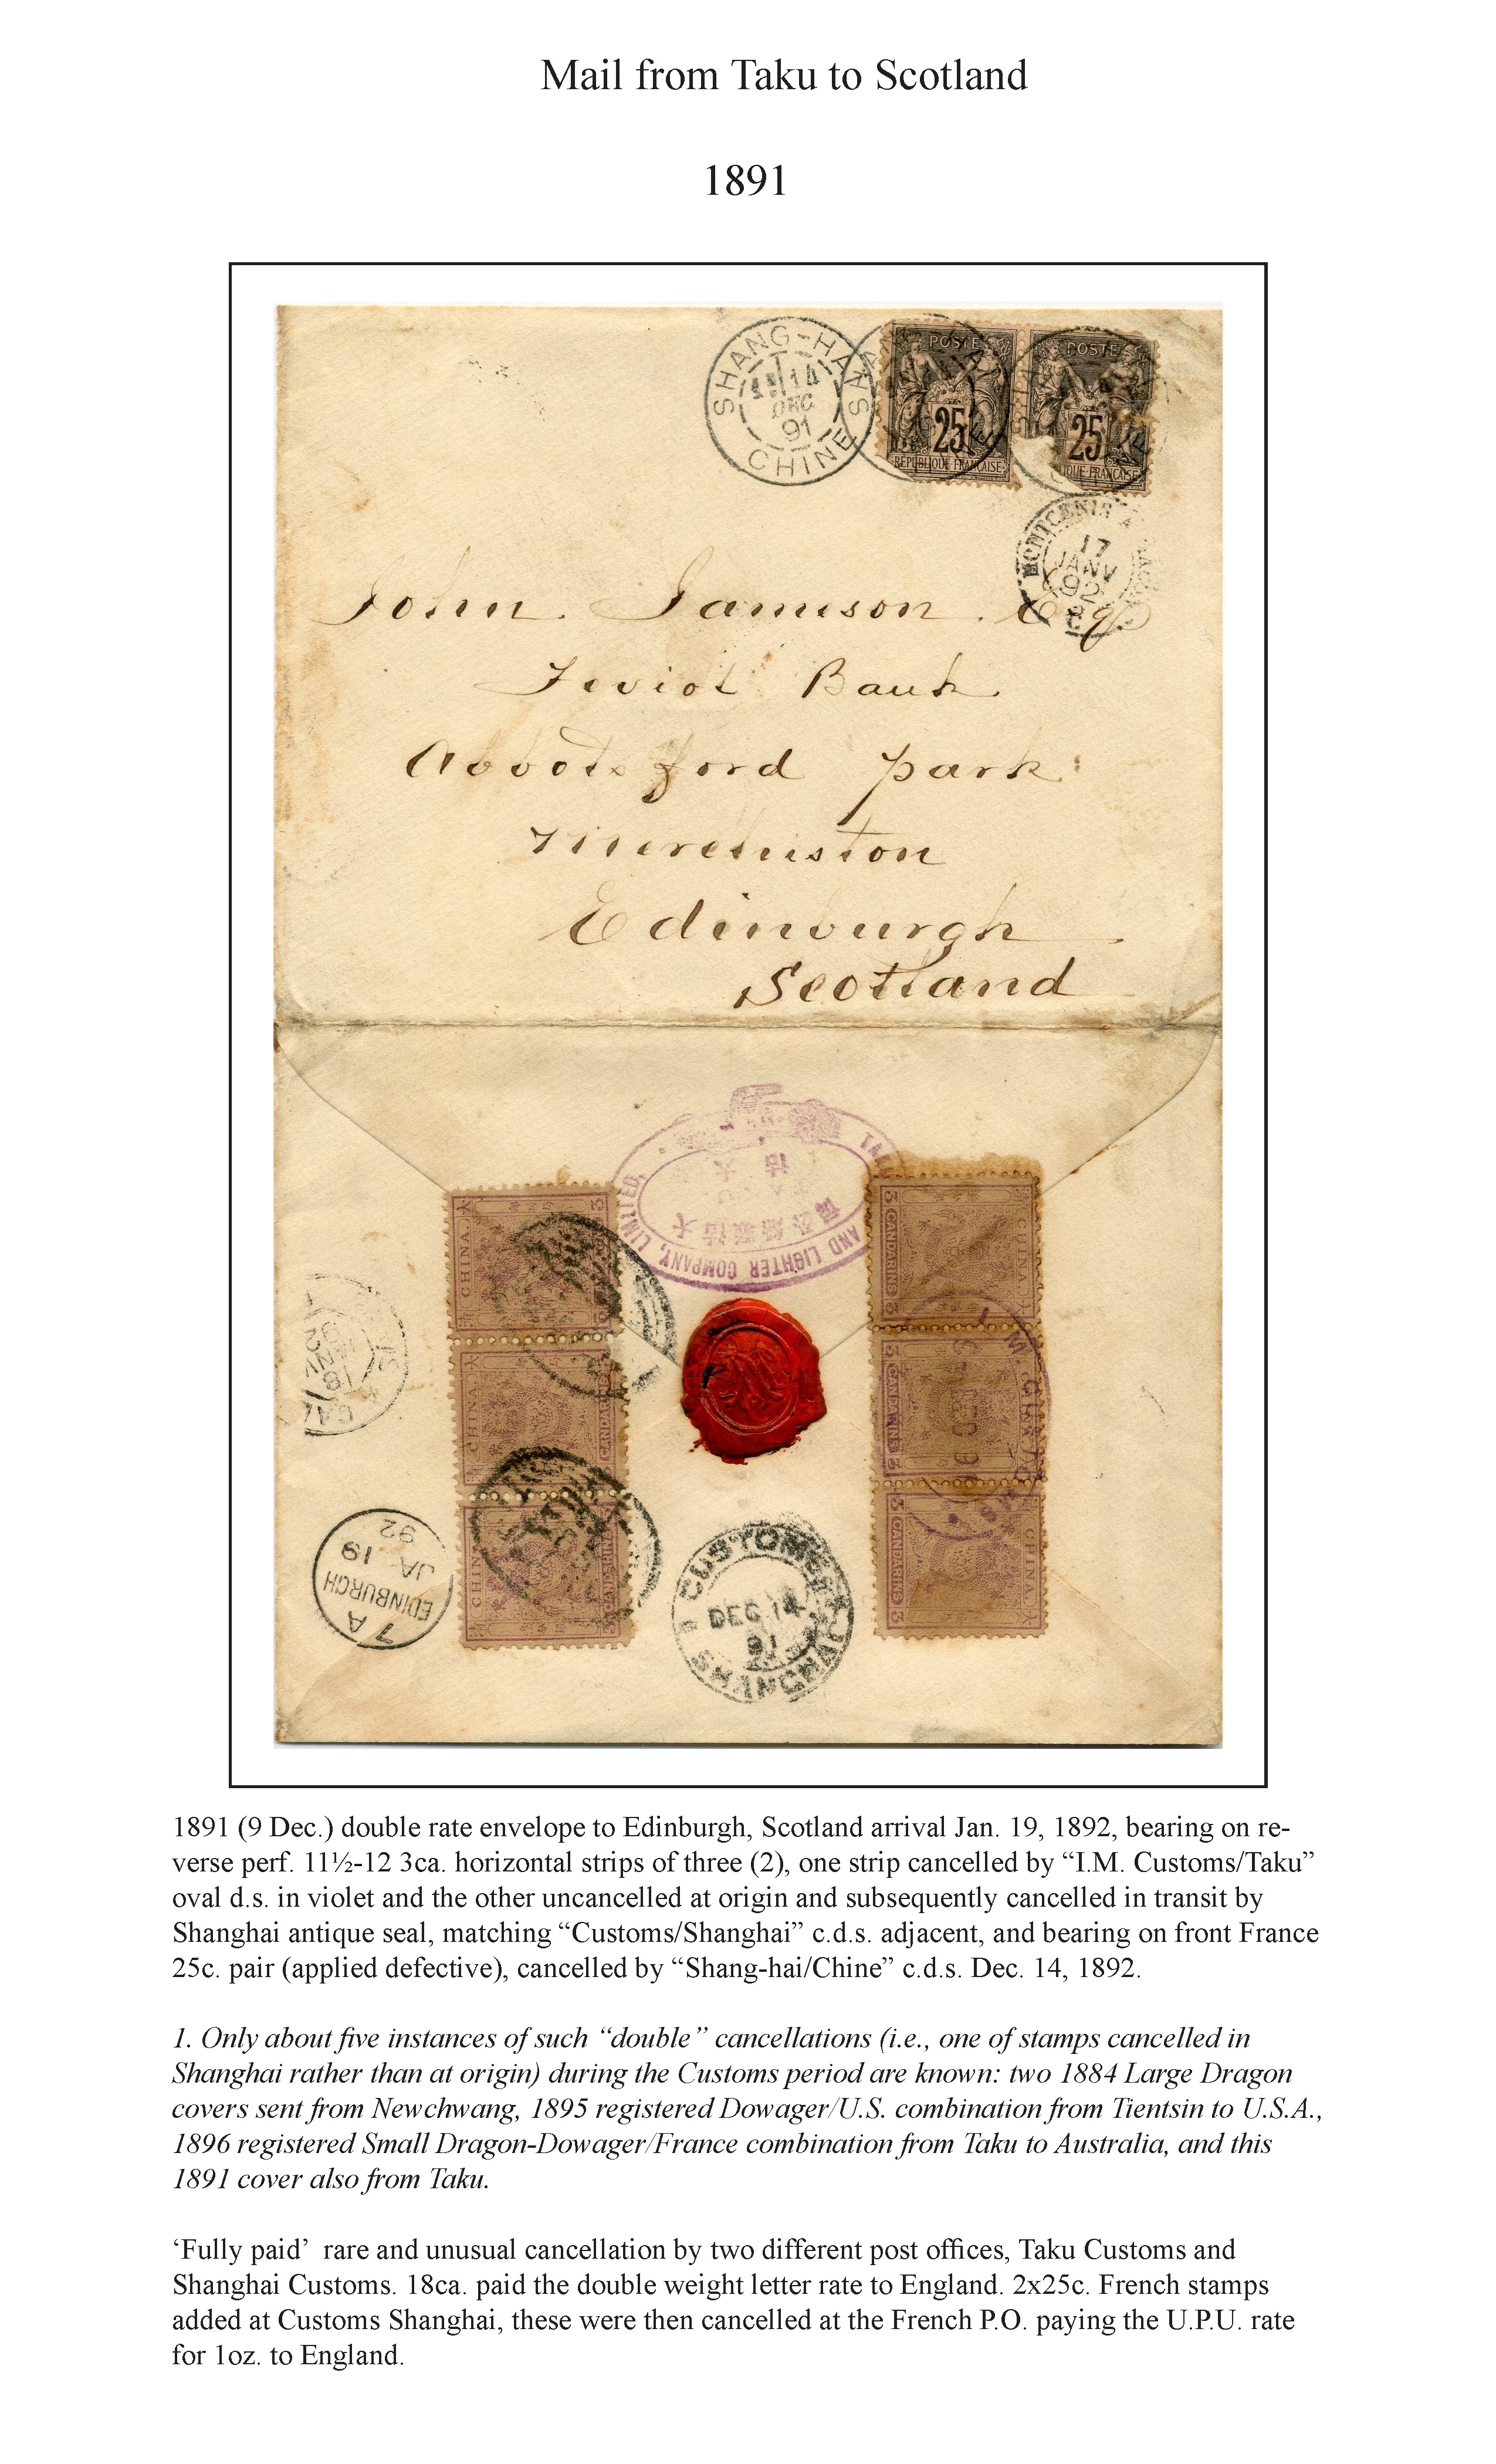 Mail from Taku to Scotland
1891
SHANG-HAI
14
DEC
91
CHINE
POSTES
25
REPUBLIQUE FRANCAISE
POSTES
25
IQUE FRANCAISE
17
JANV
92
John. Jamieson. Esq
Teviot Bank
Abbotsford park
Merchiston
Edinburgh
Scotland
TAKU
AND LIGHTER COMPANY, LIMITED.
CHINA
CHINA
CANDARINS
CHINA
CANDARINS
3 CANDARINS 3
CHINA
3 CANDARINS 3
3 CANDARINS 3
CHINA
I. M. CUSTOMS
18
JANV
92
7 A
EDINBURGH
JA 19
92
CUSTOMS
DEC 14
91
SHANGHAI
1891 (9 Dec.) double rate envelope to Edinburgh, Scotland arrival Jan. 19, 1892, bearing on re-
verse perf. 11½-12 3ca. horizontal strips of three (2), one strip cancelled by “I.M. Customs/Taku”
oval d.s. in violet and the other uncancelled at origin and subsequently cancelled in transit by
Shanghai antique seal, matching “Customs/Shanghai” c.d.s. adjacent, and bearing on front France
25c. pair (applied defective), cancelled by “Shang-hai/Chine” c.d.s. Dec. 14, 1892.
1. Only about five instances of such “double” cancellations (i.e., one of stamps cancelled in
Shanghai rather than at origin) during the Customs period are known: two 1884 Large Dragon
covers sent from Newchwang, 1895 registered Dowager/U.S. combination from Tientsin to U.S.A.,
1896 registered Small Dragon-Dowager/France combination from Taku to Australia, and this
1891 cover also from Taku.
‘Fully paid’ rare and unusual cancellation by two different post offices, Taku Customs and
Shanghai Customs. 18ca. paid the double weight letter rate to England. 2x25c. French stamps
added at Customs Shanghai, these were then cancelled at the French P.O. paying the U.P.U. rate
for 1oz. to England.